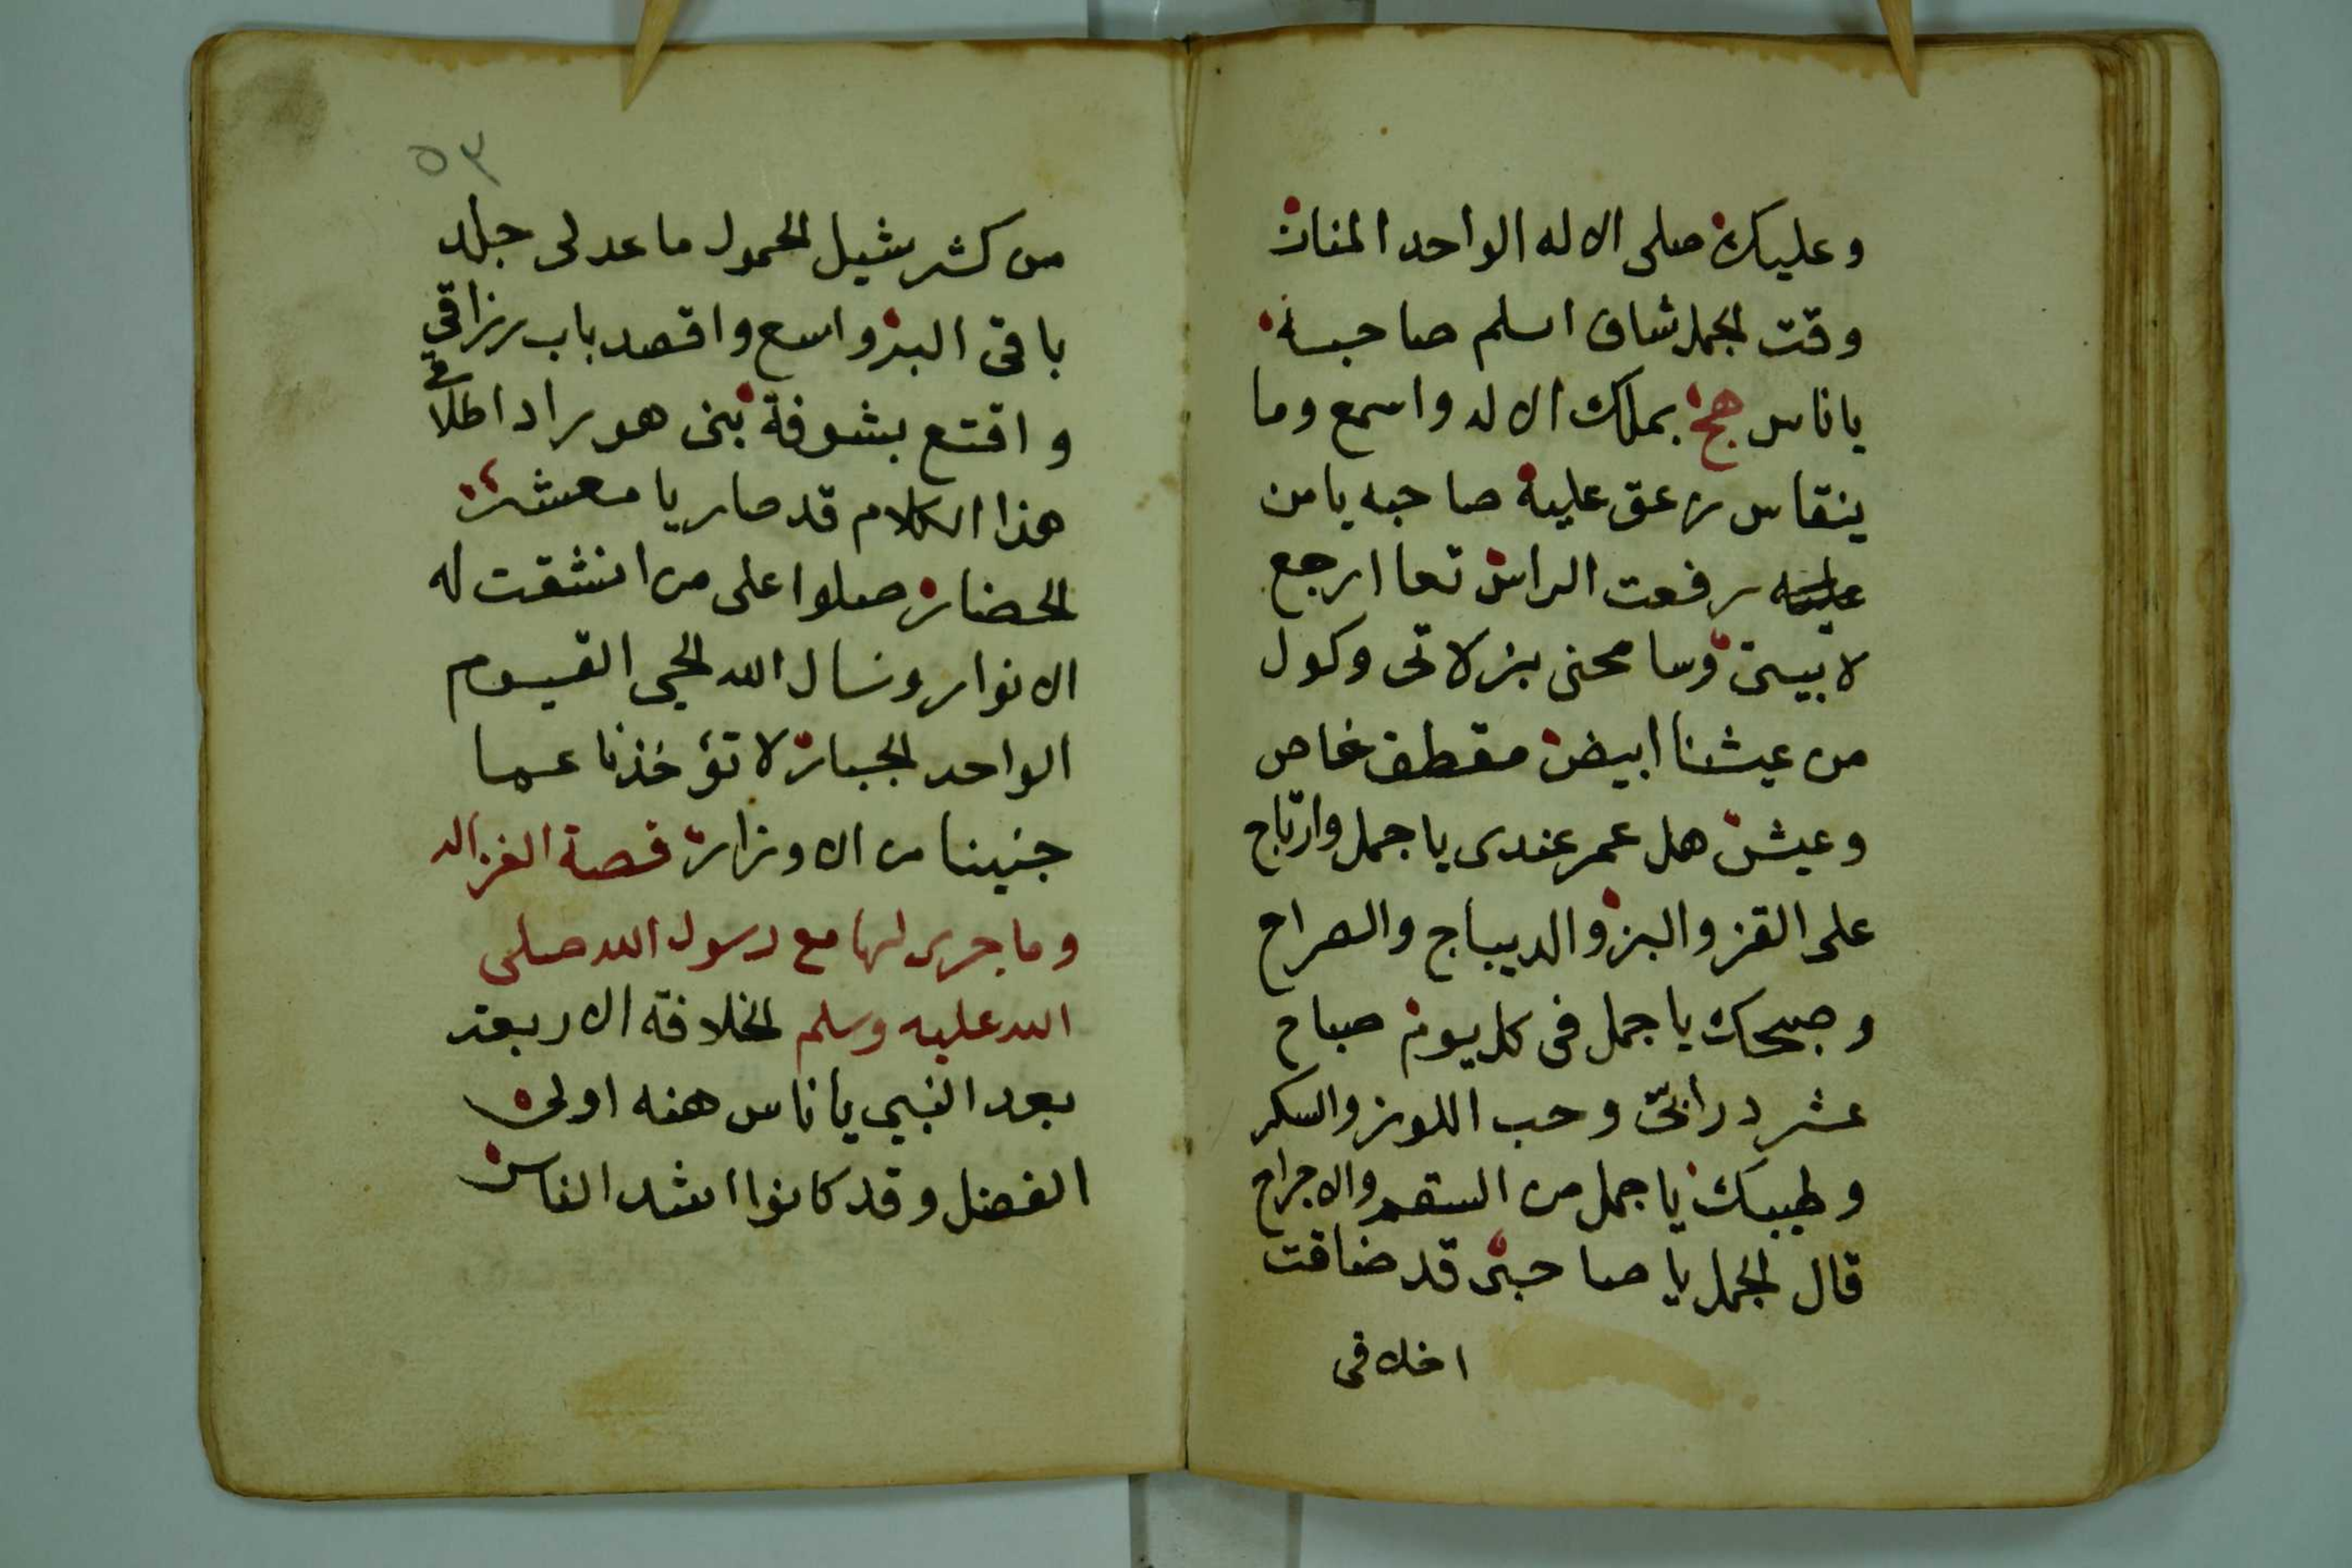 وعليك صلى الاله الواحد المنان
وقت الجمل شاف اسلم صاحبه
ياناس هج بملك الاله واسمع وما
ينقاس زعق عليه صاحبه يامن
رفعت الراس تعا ارجع
لابيتى وسامحنى بزلاتى وكول
من عيشنا ابيض مقطف خاص
وعيش هل عمر عندى ياجمل وارتاج
على القز والبز والديباج والصراح
وصبحك ياجمل فى كل يوم صباح
عشر درابتى وحب اللوز والسكر
وطببك ياجمل من السقم والاجراح
قال الجمل يا صاحبى قد ضاقت
اخلاقى
٥٣
من كثر شيل الحمول ماعد لى جلد
باقى البر واسع واقصد باب رزاقى
واقتع بشوفة نبى هو راد اطلاقى
هذا الكلام قد صار يا معشر
الحضار صلوا على من انشقت له
الانوار ونسال الله الحى القيوم
الواحد الجبار لا تؤخذنا عما
جنينا من الاوزار قصة الغزاله
وما جرى لها مع رسول الله صلى
الله عليه وسلم الخلافه الاربعة
بعد النبي ياناس هنه اولى
الفضل وقد كانوا اشد الناس